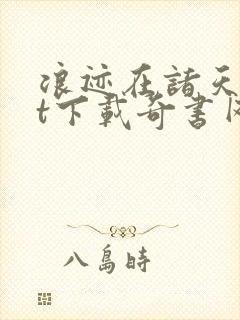 浪迹在諸天
t下載奇書网
八島時